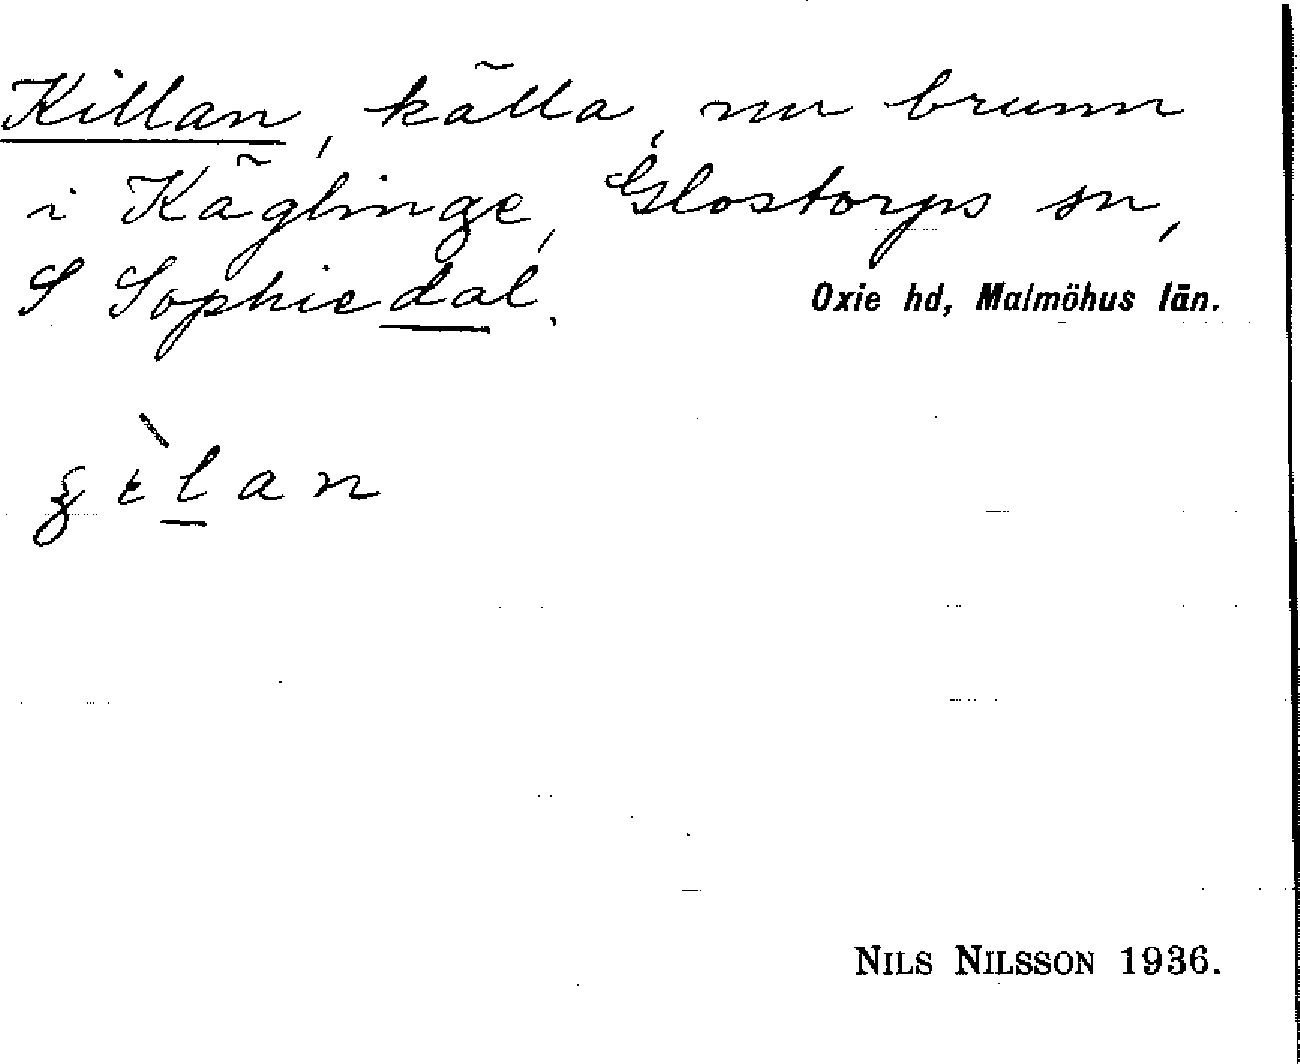 Killan, källa, nu brunn
i Käglinge, Glostorps sn,
S Sophiedal. Oxie hd, Malmöhus län.
NILS NILSSON 1936.